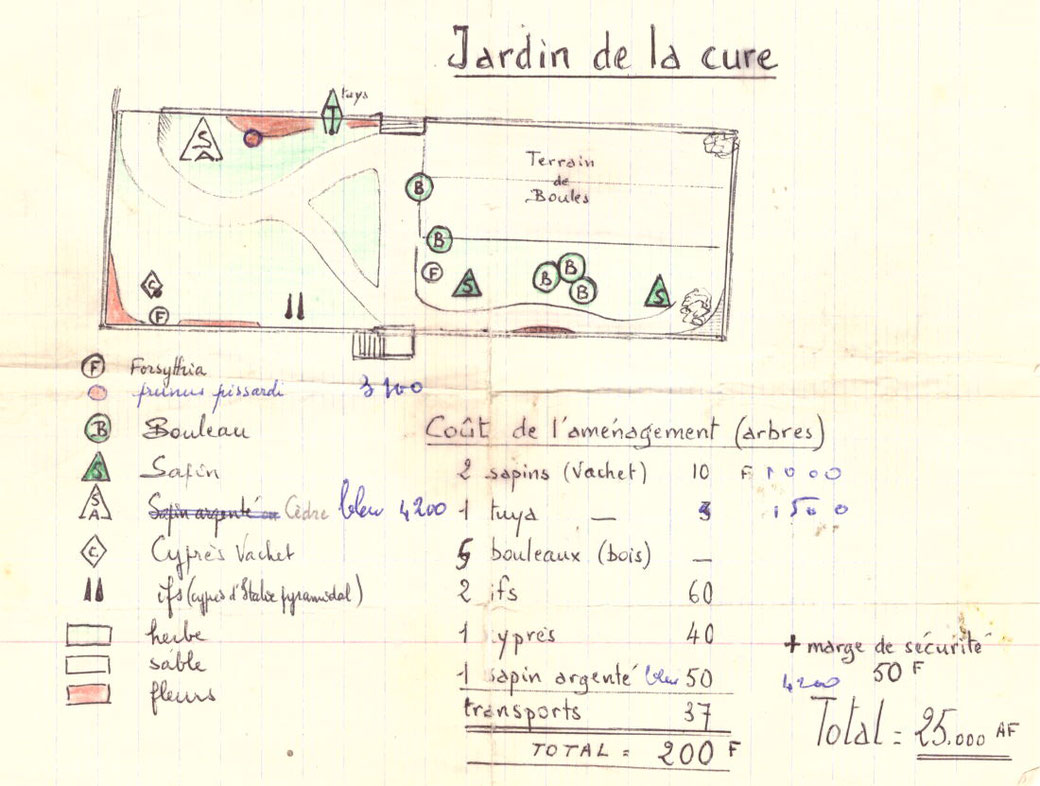 Jardin de la cure
tuya
T
S
A
Terrain
de
Boules
B
B
F
S
B
B
B
S
C
F
F Forsythia
prunus pissardi 3100
B Bouleau
S Sapin
S A Sapin argenté ou Cèdre bleu 4200
C Cyprès Vachet
ifs (cyprès d'Italie pyramidal)
herbe
sable
fleurs
Coût de l'aménagement (arbres)
2 sapins (Vachet) 10 F 1000
1 tuya — 3 1500
5 bouleaux (bois) —
2 ifs 60
1 cyprès 40
1 sapin argenté bleu 50 4200
transports 37
TOTAL = 200 F
+ marge de sécurité
50 F
Total = 25.000 AF